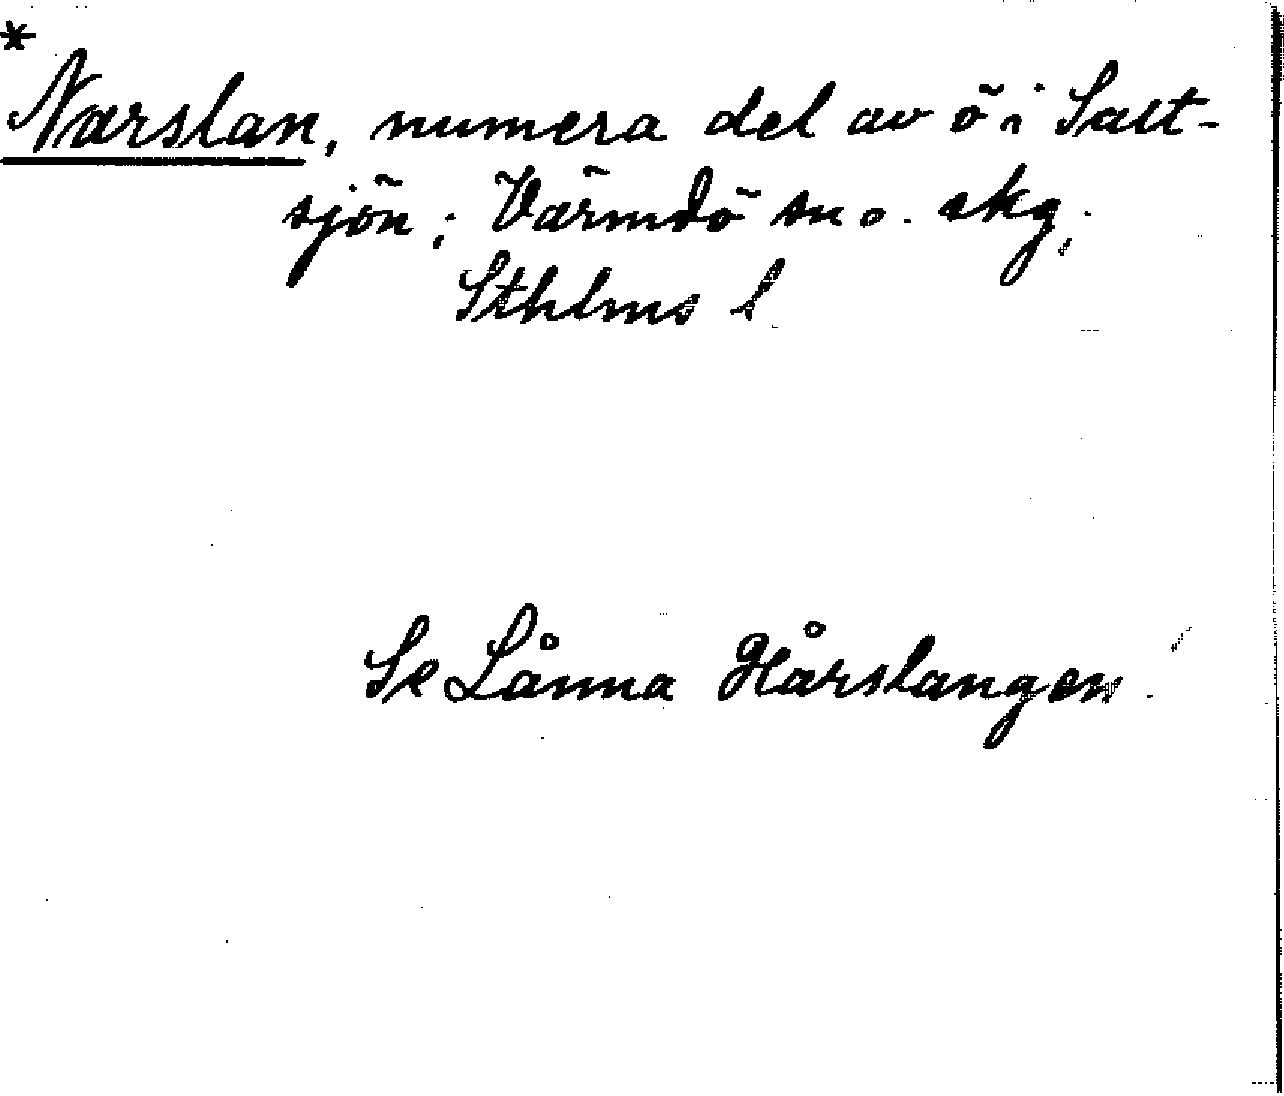 *
Narslan, numera del av ö i Salt-
sjön; Värmdö sn o. skg,
Sthlms l
Se Lånna Hårslangen